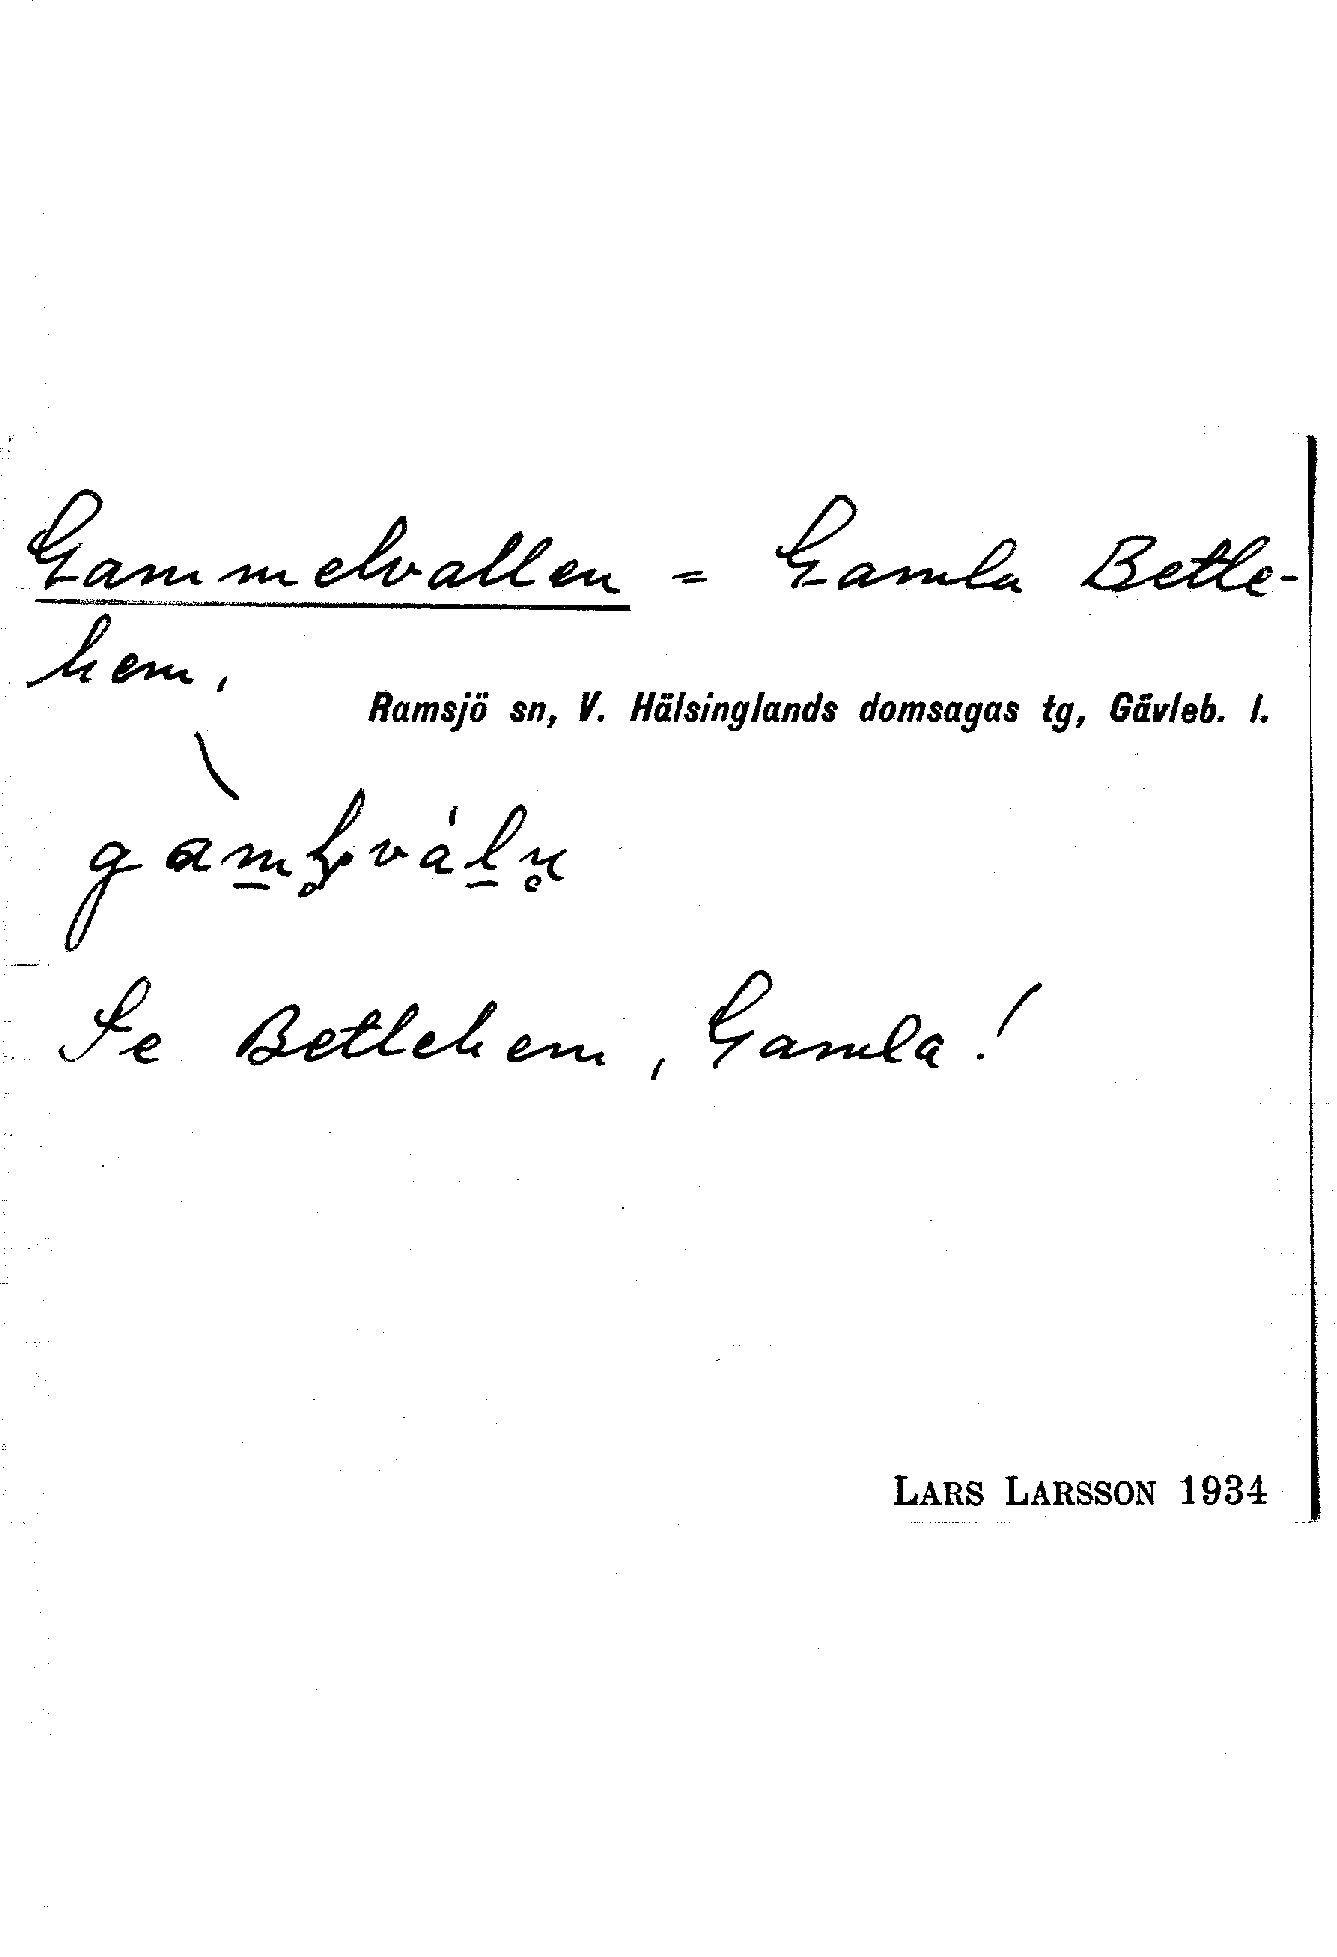 Gammelvallen = Gamla Betle-
hem,
Ramsjö sn, V. Hälsinglands domsagas tg, Gävleb. l.
Se Betlehem, Gamla!
LARS LARSSON 1934